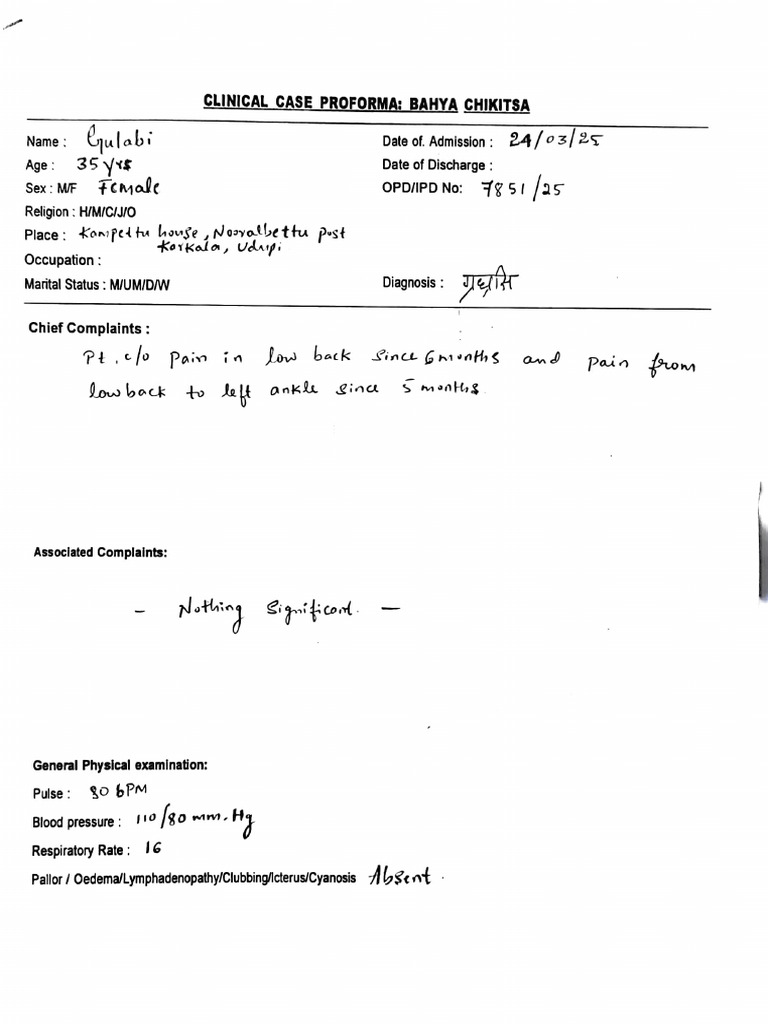 CLINICAL CASE PROFORMA: BAHYA CHIKITSA
Name : Gulabi
Date of. Admission : 24/03/25
Age : 35 yrs
Date of Discharge :
Sex : M/F Female
OPD/IPD No: 7851/25
Religion : H/M/C/J/O
Place : Kampettu house, Nooralbettu post
Karkala, Udupi
Occupation :
Marital Status : M/UM/D/W
Diagnosis : गृध्रसि
Chief Complaints :
Pt. c/o pain in low back since 6 months and pain from
low back to left ankle since 5 months.
Associated Complaints:
- Nothing Significant. -
General Physical examination:
Pulse : 80 bPM
Blood pressure : 110/80 mm.Hg
Respiratory Rate : 16
Pallor / Oedema/Lymphadenopathy/Clubbing/Icterus/Cyanosis Absent.